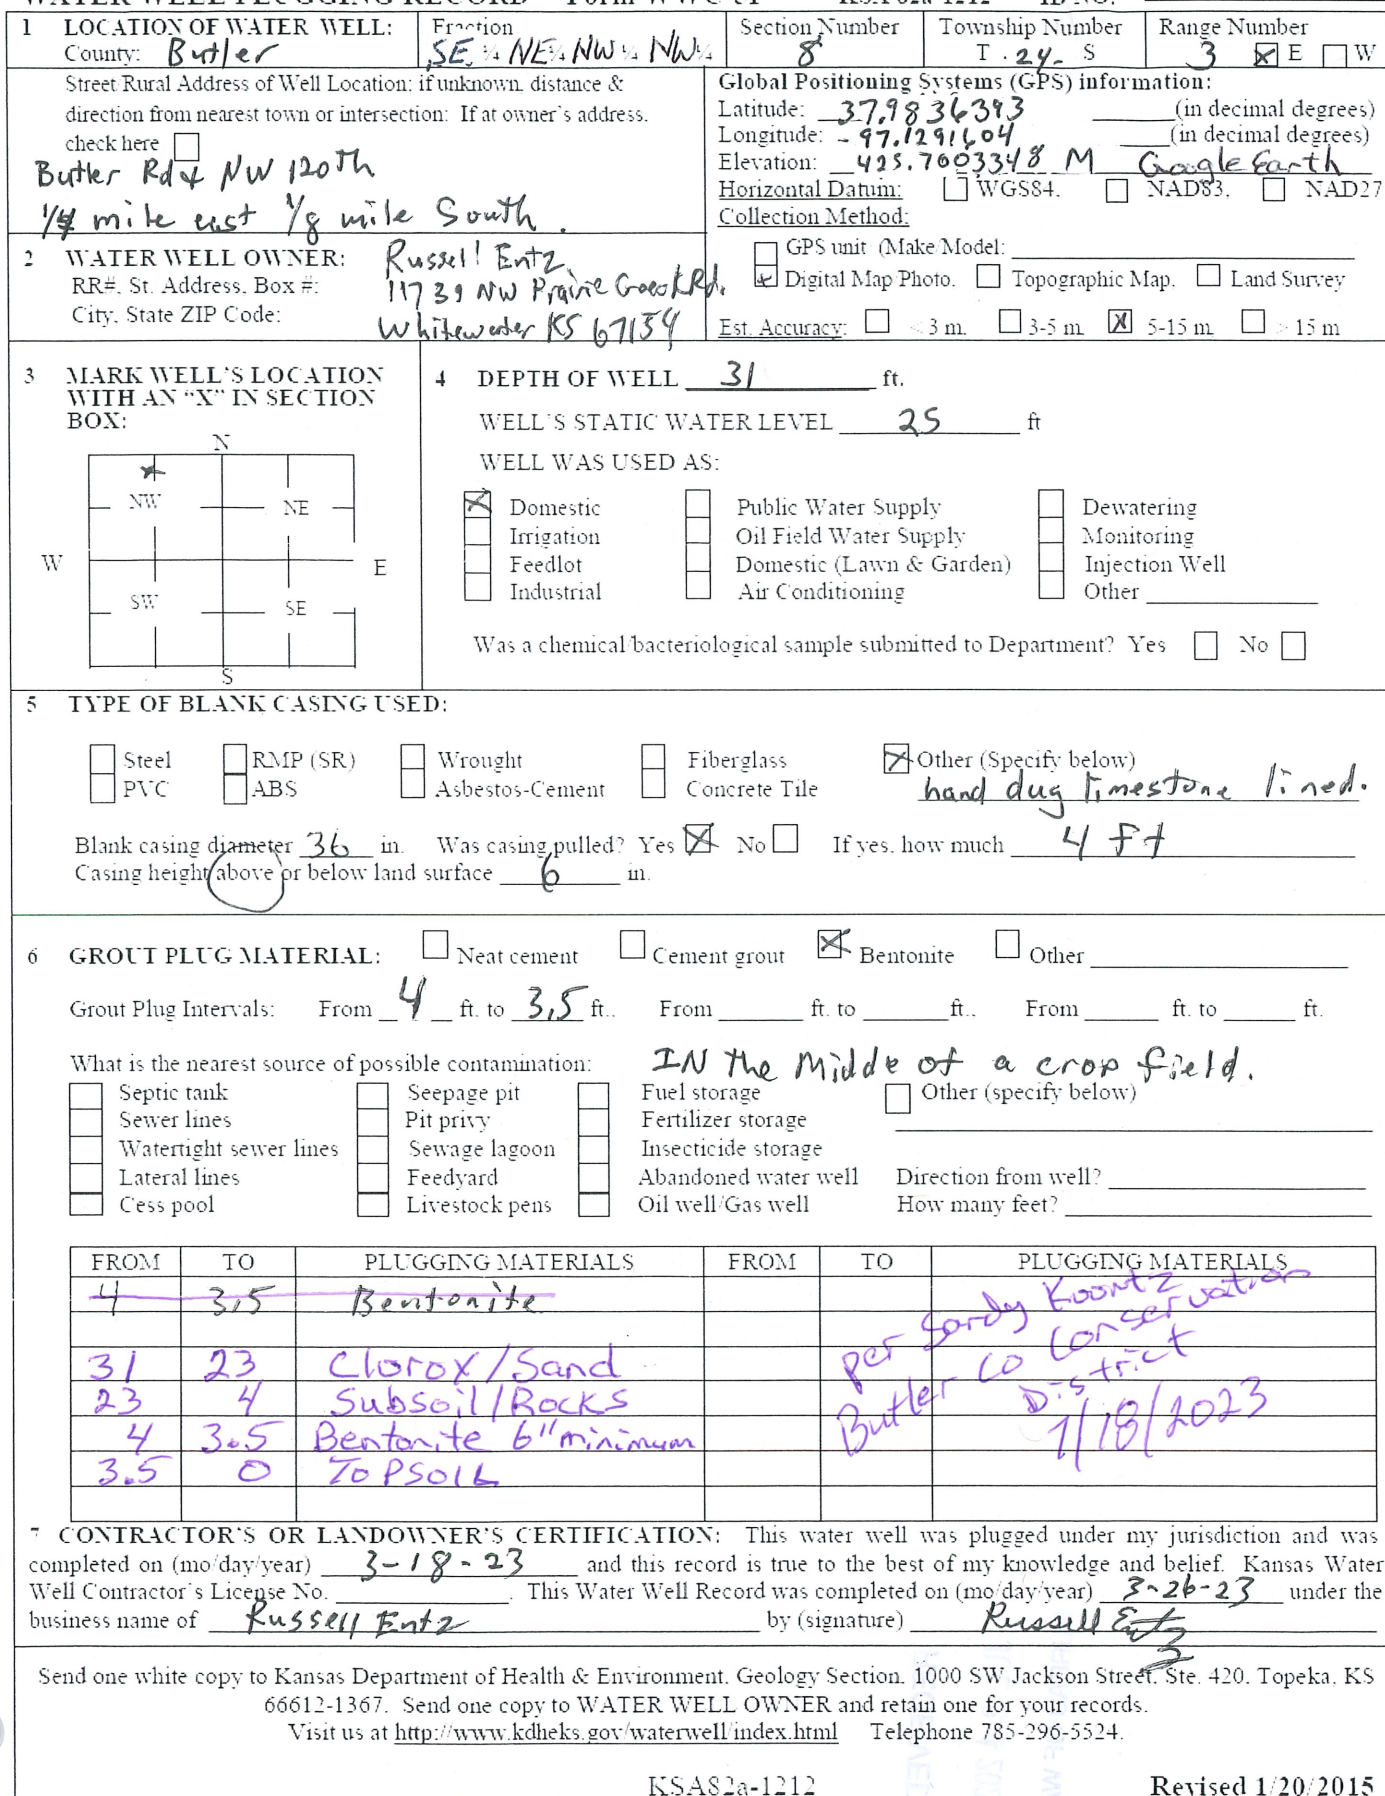 WATER WELL PLUGGING RECORD Form WWC-5P KSA 82a-1212 ID NO.
1 LOCATION OF WATER WELL: Fraction Section Number Township Number Range Number
County: Butler SE ¼ NE ¼ NW ¼ NW ¼ 8 T . 24 S 3 E W
Street Rural Address of Well Location: if unknown, distance &
direction from nearest town or intersection: If at owner's address,
check here
Butler Rd & NW 120th
1/4 mile east 1/8 mile South.
Global Positioning Systems (GPS) information:
Latitude: 37.9836393 (in decimal degrees)
Longitude: -97.1291604 (in decimal degrees)
Elevation: 425.7003348 M Google Earth
Horizontal Datum: WGS84, NAD83, NAD27
Collection Method:
GPS unit (Make/Model:
Digital Map Photo, Topographic Map, Land Survey
Est. Accuracy: < 3 m, 3-5 m, 5-15 m, > 15 m
2 WATER WELL OWNER: Russell Entz
RR#, St. Address, Box #: 11739 NW Prairie Creek Rd.
City, State ZIP Code: Whitewater KS 67154
3 MARK WELL'S LOCATION
WITH AN "X" IN SECTION
BOX:
N
NW NE
W E
SW SE
S
4 DEPTH OF WELL 31 ft.
WELL'S STATIC WATER LEVEL 25 ft
WELL WAS USED AS:
Domestic Public Water Supply Dewatering
Irrigation Oil Field Water Supply Monitoring
Feedlot Domestic (Lawn & Garden) Injection Well
Industrial Air Conditioning Other
Was a chemical/bacteriological sample submitted to Department? Yes No
5 TYPE OF BLANK CASING USED:
Steel RMP (SR) Wrought Fiberglass Other (Specify below)
PVC ABS Asbestos-Cement Concrete Tile hand dug limestone lined.
Blank casing diameter 36 in. Was casing pulled? Yes No If yes, how much 4 ft
Casing height above or below land surface 6 in.
6 GROUT PLUG MATERIAL: Neat cement Cement grout Bentonite Other
Grout Plug Intervals: From 4 ft. to 3.5 ft., From ft. to ft., From ft. to ft.
What is the nearest source of possible contamination: IN the Midde of a crop field.
Septic tank Seepage pit Fuel storage Other (specify below)
Sewer lines Pit privy Fertilizer storage
Watertight sewer lines Sewage lagoon Insecticide storage
Lateral lines Feedyard Abandoned water well Direction from well?
Cess pool Livestock pens Oil well/Gas well How many feet?
FROM TO PLUGGING MATERIALS FROM TO PLUGGING MATERIALS
4 3.5 Bentonite
31 23 Clorox/Sand
23 4 Subsoil/Rocks
4 3.5 Bentonite 6" minimum
3.5 0 TOPSOIL
per Sandy Koontz
Butler Co Conservation
District
7/18/2023
7 CONTRACTOR'S OR LANDOWNER'S CERTIFICATION: This water well was plugged under my jurisdiction and was
completed on (mo/day/year) 3-18-23 and this record is true to the best of my knowledge and belief. Kansas Water
Well Contractor's License No. . This Water Well Record was completed on (mo/day/year) 3-26-23 under the
business name of Russell Entz by (signature) Russell Entz
Send one white copy to Kansas Department of Health & Environment, Geology Section, 1000 SW Jackson Street, Ste. 420, Topeka, KS
66612-1367. Send one copy to WATER WELL OWNER and retain one for your records.
Visit us at http://www.kdheks.gov/waterwell/index.html Telephone 785-296-5524.
KSA82a-1212 Revised 1/20/2015